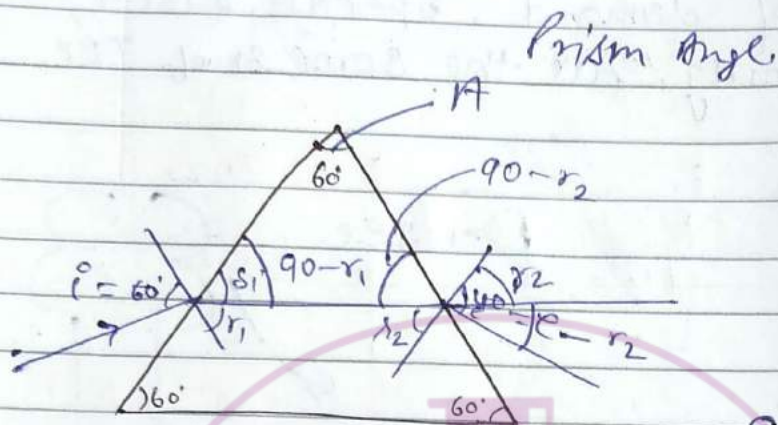 Prism Angle
A
60°
90-r₂
i = 60°
δ₁
90-r₁
r₂
r₁
r₂
e - r₂
60°
60°